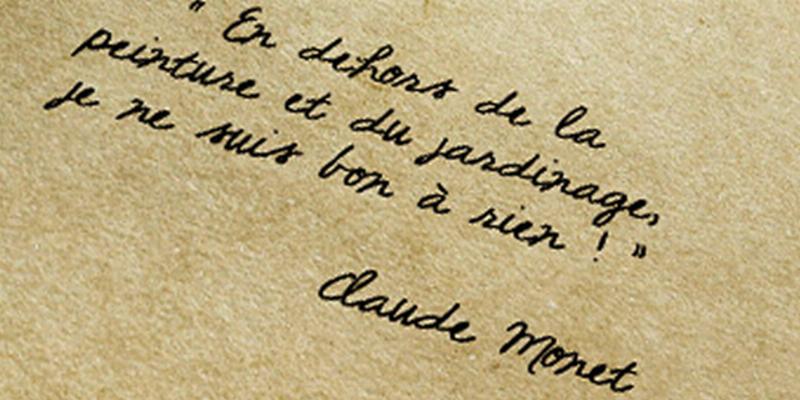 " En dehors de la
peinture et du jardinage,
je ne suis bon à rien ! "
Claude Monet